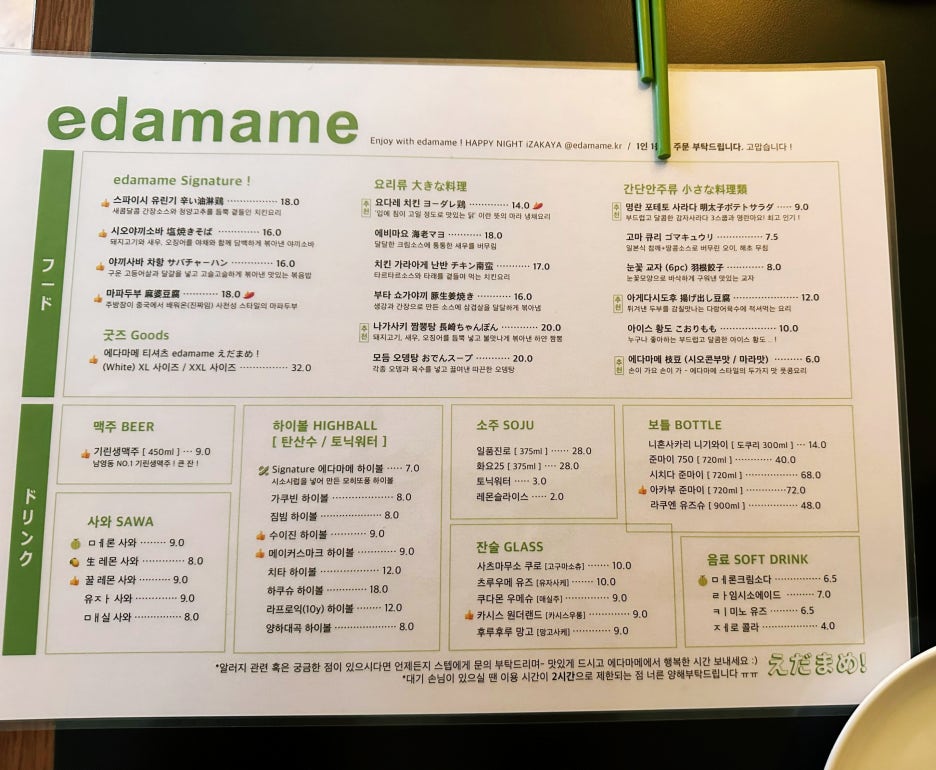 edamame
Enjoy with edamame ! HAPPY NIGHT iZAKAYA @edamame.kr / 1인 주문 부탁드립니다. 고맙습니다 !
フード
edamame Signature !
스파이시 유린기 辛い油淋鶏 18.0
새콤달콤 간장소스와 청양고추를 듬뿍 곁들인 치킨요리
시오야끼소바 塩焼きそば 16.0
돼지고기와 새우, 오징어를 야채와 함께 담백하게 볶아낸 야끼소바
야끼사바 차항 サバチャーハン 16.0
구운 고등어살과 달걀을 넣고 고슬고슬하게 볶아낸 맛있는 볶음밥
마파두부 麻婆豆腐 18.0
주방장이 중국에서 배워온(진짜임) 사천성 스타일의 마파두부
굿즈 Goods
에다마메 티셔츠 edamame えだまめ !
(White) XL 사이즈 / XXL 사이즈 32.0
요리류 大きな料理
추천 요다레 치킨 ヨーダレ鶏 14.0
'입에 침이 고일 정도로 맛있는 닭' 이란 뜻의 마라 냉채요리
에비마요 海老マヨ 18.0
달달한 크림소스에 통통한 새우를 버무림
치킨 가라아게 난반 チキン南蛮 17.0
타르타르소스와 타래를 곁들여 먹는 치킨요리
부타 쇼가야끼 豚生姜焼き 16.0
생강과 간장으로 만든 소스에 삼겹살을 달달하게 볶아냄
추천 나가사키 짬뽕탕 長崎ちゃんぽん 20.0
돼지고기, 새우, 오징어를 듬뿍 넣고 불맛나게 볶아낸 하얀 짬뽕
모듬 오뎅탕 おでんスープ 20.0
각종 오뎅과 육수를 넣고 끓여낸 따끈한 오뎅탕
간단안주류 小さな料理類
추천 명란 포테토 사라다 明太子ポテトサラダ 9.0
부드럽고 달콤한 감자사라다 3스쿱과 명란마요! 최고 인기 !
고마 큐리 ゴマキュウリ 7.5
일본식 참깨+땅콩소스로 버무린 오이, 해초 무침
눈꽃 교자 (6pc) 羽根餃子 8.0
눈꽃모양으로 바삭하게 구워낸 맛있는 교자
추천 아게다시도후 揚げ出し豆腐 12.0
튀겨낸 두부를 감칠맛나는 다랑어육수에 적셔먹는 요리
아이스 황도 こおりもも 10.0
누구나 좋아하는 부드럽고 달콤한 아이스 황도.. !
추천 에다마메 枝豆 (시오콘부맛 / 마라맛) 6.0
손이 가요 손이 가 - 에다마메 스타일의 두가지 맛 풋콩요리
ドリンク
맥주 BEER
기린생맥주 [ 450ml ] 9.0
남영동 NO.1 기린생맥주 ! 큰 잔 !
사와 SAWA
ㅁㅔ론 사와 9.0
生 레몬 사와 8.0
꿀 레몬 사와 9.0
유ㅈㅏ 사와 9.0
ㅁㅐ실 사와 8.0
하이볼 HIGHBALL
[ 탄산수 / 토닉워터 ]
Signature 에다마메 하이볼 7.0
시소시럽을 넣어 만든 모히또풍 하이볼
가쿠빈 하이볼 8.0
짐빔 하이볼 8.0
수이진 하이볼 9.0
메이커스마크 하이볼 9.0
치타 하이볼 12.0
하쿠슈 하이볼 18.0
라프로익(10y) 하이볼 12.0
양하대곡 하이볼 8.0
소주 SOJU
일품진로 [ 375ml ] 28.0
화요25 [ 375ml ] 28.0
토닉워터 3.0
레몬슬라이스 2.0
잔술 GLASS
사츠마무소 쿠로 [고구마소츄] 10.0
츠루우메 유즈 [유자사케] 10.0
쿠다몬 우메슈 [매실주] 9.0
카시스 원더랜드 [카시스우롱] 9.0
후루후루 망고 [망고사케] 9.0
보틀 BOTTLE
니혼사카리 니기와이 [ 도쿠리 300ml ] 14.0
준마이 750 [ 720ml ] 40.0
시치다 준마이 [ 720ml ] 68.0
아카부 준마이 [ 720ml ] 72.0
라쿠엔 유즈슈 [ 900ml ] 48.0
음료 SOFT DRINK
ㅁㅔ론크림소다 6.5
ㄹㅏ임시소에이드 7.0
ㅋㅣ미노 유즈 6.5
ㅈㅔ로 콜라 4.0
*알러지 관련 혹은 궁금한 점이 있으시다면 언제든지 스텝에게 문의 부탁드리며- 맛있게 드시고 에다마메에서 행복한 시간 보내세요 :)
*대기 손님이 있으실 땐 이용 시간이 2시간으로 제한되는 점 너른 양해부탁드립니다 ㅠㅠ
えだまめ!